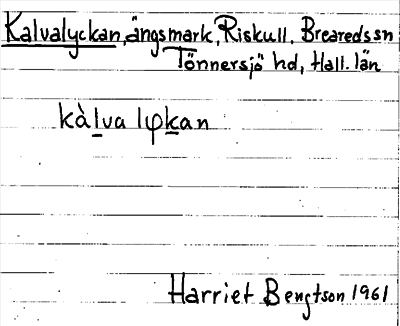 Kalvalyckan, ängsmark, Riskull, Brearedssn
Tönnersjö hd, Hall. län
kàlva lφkan
Harriet Bengtson 1961